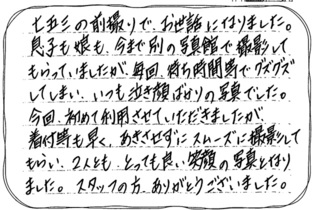 七五三の前撮りで、お世話になりました。
息子も娘も、今まで別の写真館で撮影して
もらっていましたが、毎回、待ち時間等でグズグズ
してしまい、いつも泣き顔ばかりの写真でした。
今回、初めて利用させていただきましたが、
着付等も早く、あきさせずにスムーズに撮影して
もらい、2人とも、とっても良い笑顔の写真となり
ました。スタッフの方、ありがとうございました。